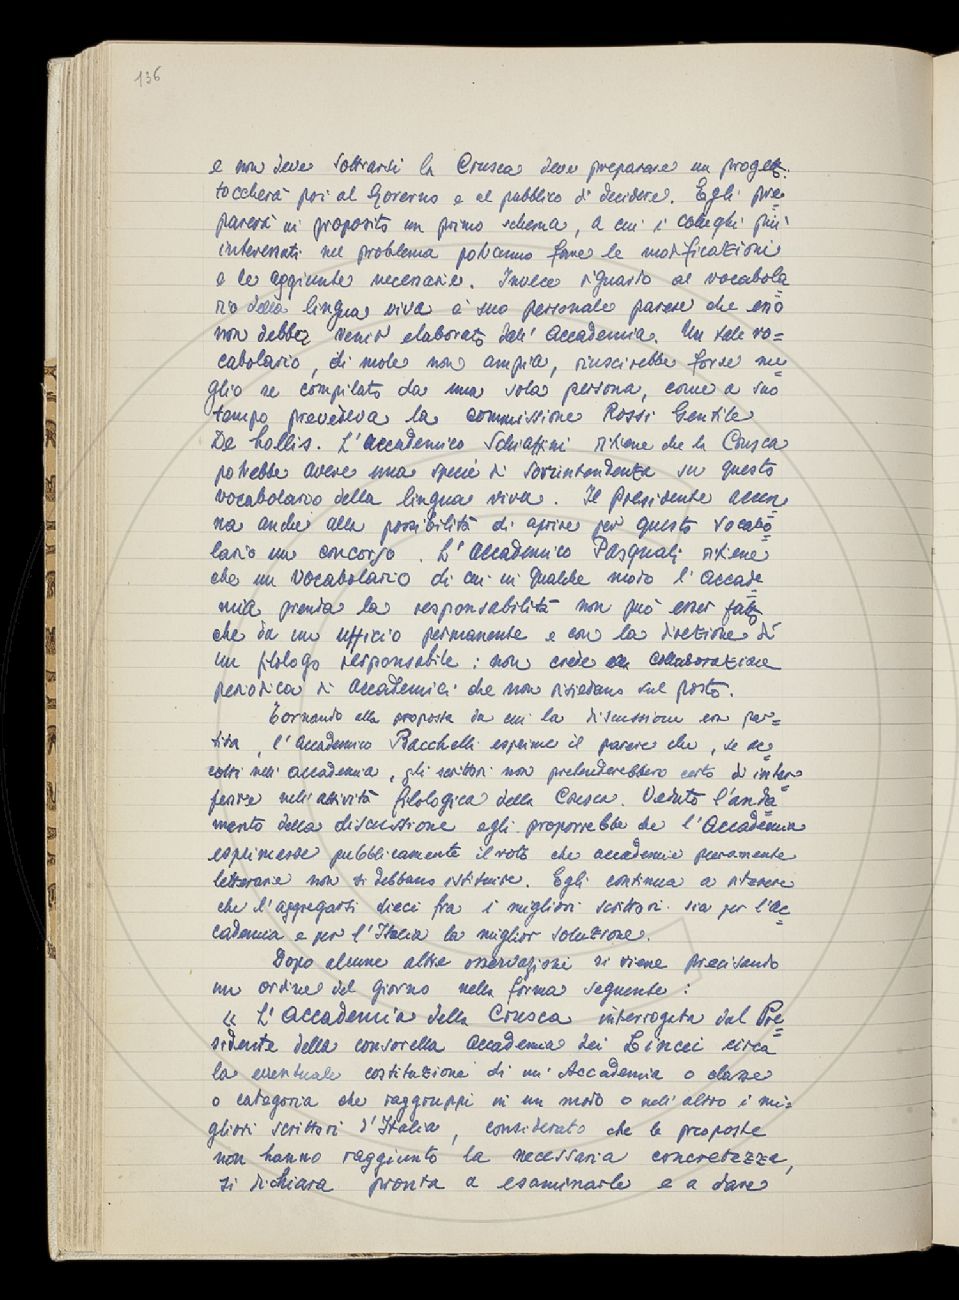 136
e non deve sottrarsi la Crusca deve preparare un progett.
toccherà poi al Governo e al pubblico di decidere. Egli pre=
parerà in proposito un primo schema, a cui i colleghi più
interessati nel problema potranno fare le modificazioni
e le aggiunte necessarie. Invece riguardo al vocabola=
rio della lingua viva è suo personale parere che esso
non debba venir elaborato dall'Accademia. Un tale vo=
cabolario, di mole non ampia, riuscirebbe forse me=
glio se compilato da una sola persona, come a suo
tempo prevedeva la commissione Rossi Gentile
De Lollis. L'accademico Schiaffini ritiene che la Crusca
potrebbe avere una specie di sovrintendenza su questo
vocabolario della lingua viva. Il Presidente accen=
na anche alla possibilità di aprire per questo vocabo=
lario un concorso. L'Accademico Pasquali ritiene
che un vocabolario di cui in qualche modo l'accade=
mia prenda la responsabilità non può esser fatto
che da un ufficio permanente e con la direzione di
un filologo responsabile: non crede collaborazione
periodica di Accademici che non risiedano sul posto.
Tornando alla proposta da cui la discussione era par=
tita, l'Accademico Bacchelli esprime il parere che, se ac=
colti nell'accademia, gli scrittori non pretenderebbero certo di inter=
ferire nell'attività filologica della Crusca. Veduto l'anda=
mento della discussione egli proporrebbe che l'Accademia
esprimesse pubblicamente il voto che accademie puramente
letterarie non si debbano istituire. Egli continua a ritenere
che l'aggregarsi dieci fra i migliori scrittori sia per l'Ac=
cademia e per l'Italia la miglior soluzione.
Dopo alcune altre osservazioni si viene precisando
un ordine del giorno nella forma seguente:
« L'Accademia della Crusca interrogata dal Pre=
sidente della consorella Accademia dei Lincei circa
la eventuale costituzione di un'Accademia o classe
o categoria che raggruppi in un modo o nell'altro i mi=
gliori scrittori d'Italia, considerato che le proposte
non hanno raggiunto la necessaria concretezza,
si dichiara pronta a esaminarle e a dare